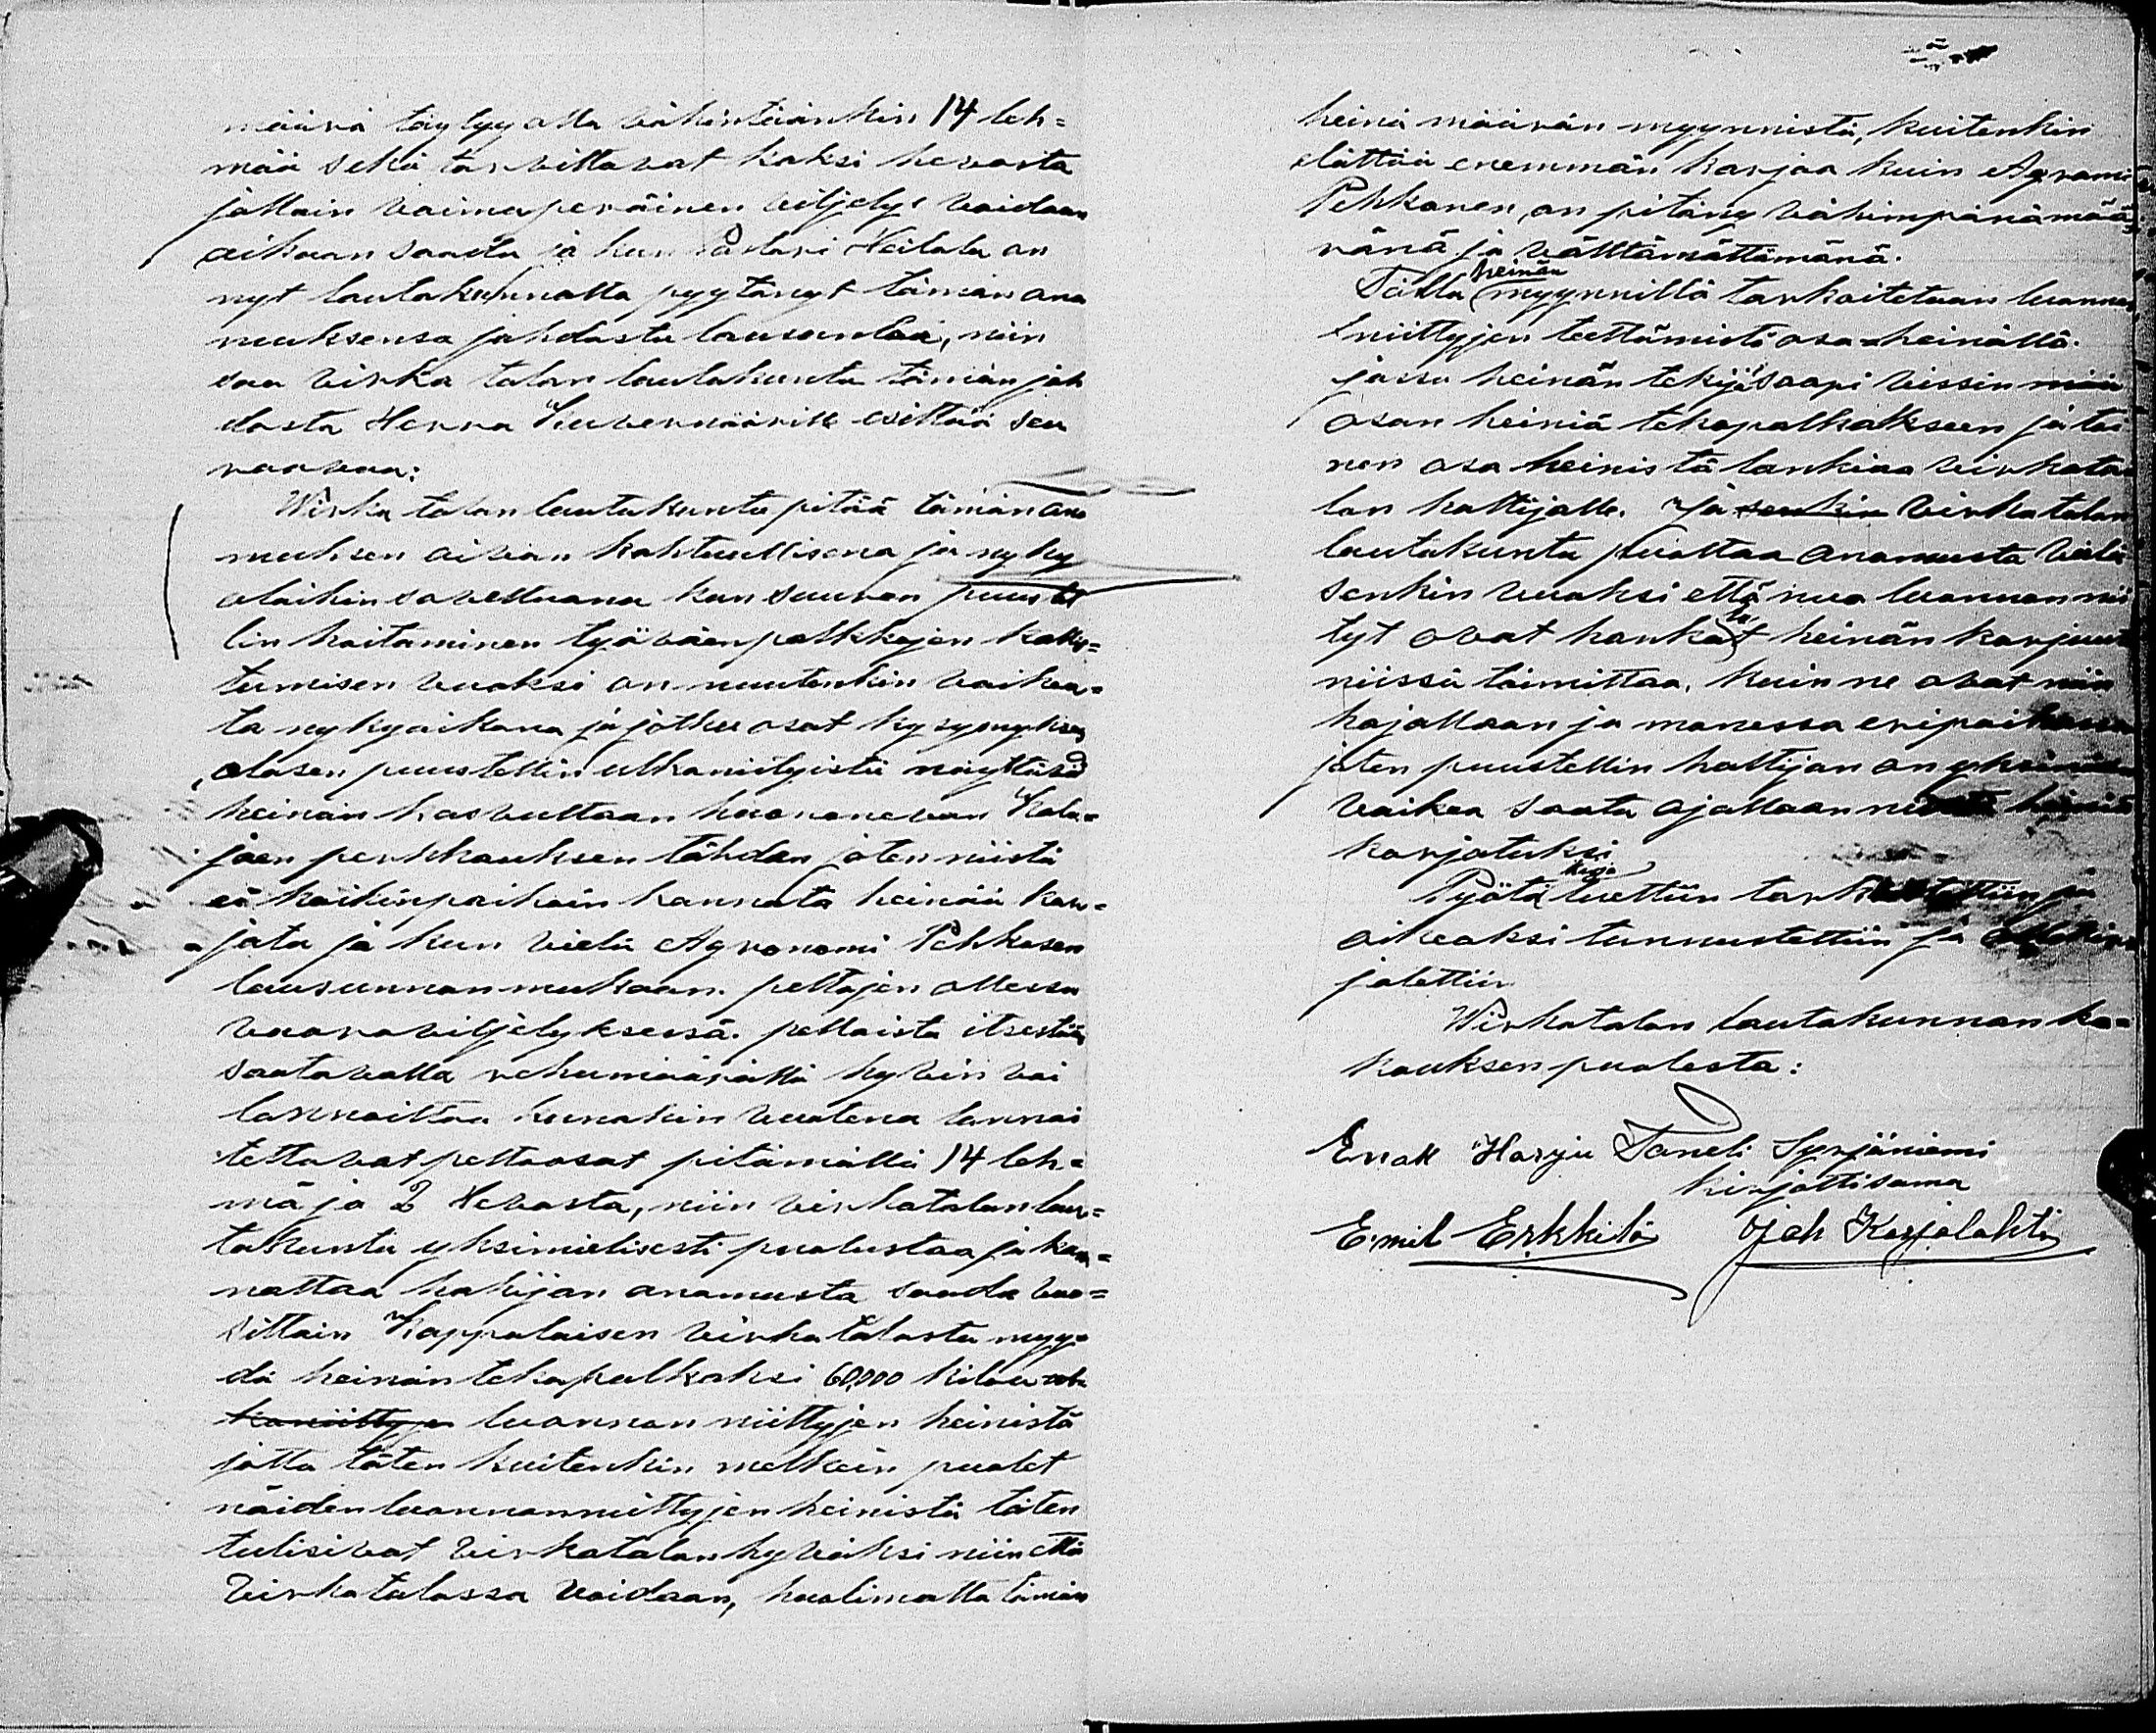 määrä täytyy olla vähintäänkin 14 leh=
mää sekä tarvittavat kaksi hevosta
jolloin voimaperäinen viljelys voidaan
aikaan saada ja kun Pastori Heilala on
nyt lautakunnalta pyytänyt tämän ano
muksensa johdosta lausuntoa, niin
saa virka talon lautakunta tämän joh
dosta Herra Kuvernöörille esittää seu
raavaa:
Wirka talon lautakunta pitää tämän ano
muksen aivan kohtuullisena ja nyky
oloihin soveltuvana kun suuren puustel
lin hoitaminen työväen palkkojen kallis=
tumisen vuoksi on muutenkin vaikea=
ta nykyaikana ja jotku osat kysymyksen
alasen puustellin ulkoniityistä näyttäsi
heinän kasvultaan huononevan Kala=
joen perkkauksen tähden joten niistä
ei kaikinpaikoin kannata heinää kor=
jata ja kun vielä Agronomi Pehkosen
lausunnon mukaan peltojen ollessa
vuoroviljelyksessä pelloista itsestään
saatavalla rehumäärällä hyvin voi
lannoittaa kunakin vuotena lannoi
tettavat peltoosat pitämällä 14 leh=
mä ja 2 Hevosta, niin virkatalon lau=
takunta yksimielisesti puolustaa ja kan=
nattaa hakijan anomusta saada vuo=
sittain Kappalaisen virka talosta myy=
dä heinän tekopalkoksi 60,000 kiloa ul
koniittyje luonnon niittyjen heinistä
jotta täten kuitenkin melkein puolet
näiden luonnonniittyjen heinistä täten
tulisivat virkatalon hyväksi niin että
Virkatalossa voidaan, huolimatta tämän
heinä määrän myynnistä, kuitenkin
elättää enemmän karjaa kuin Agronomi
Pehkonen on pitäny vähimpänä mää
ränä ja välttämättömänä.
Tällä heinän myynnillä tarkoitetaan luonnon
niittyjen teettämistä osa=heinällä
jossa heinän tekijä saapi vissin
osan heiniä tekopalkakseen ja toi
nen osa heinistä lankiaa virkata
lon haltijalle. Ja senkin Virkatalon
lautakunta puoltaa anomusta vielä
senkin vuoksi että nuo luonnon nii
tyt ovat hankalat heinän korjuuta
niissä toimittaa, kuin ne ovat niin
hajallaan ja monessa eripaikassa
joten puustellin haltijan on
vaikea saata ajallaan
korjatuksi
Pöytäkirja luettiin tarkistettiin ja
oikeaksi tunnustettiin ja
jolettiin
Wirkatalon lautakunnan ko=
kouksen puolesta:
Taneli Syrjäniemi
kirjottisama
Emil Erkkilä Joh Karjalahti